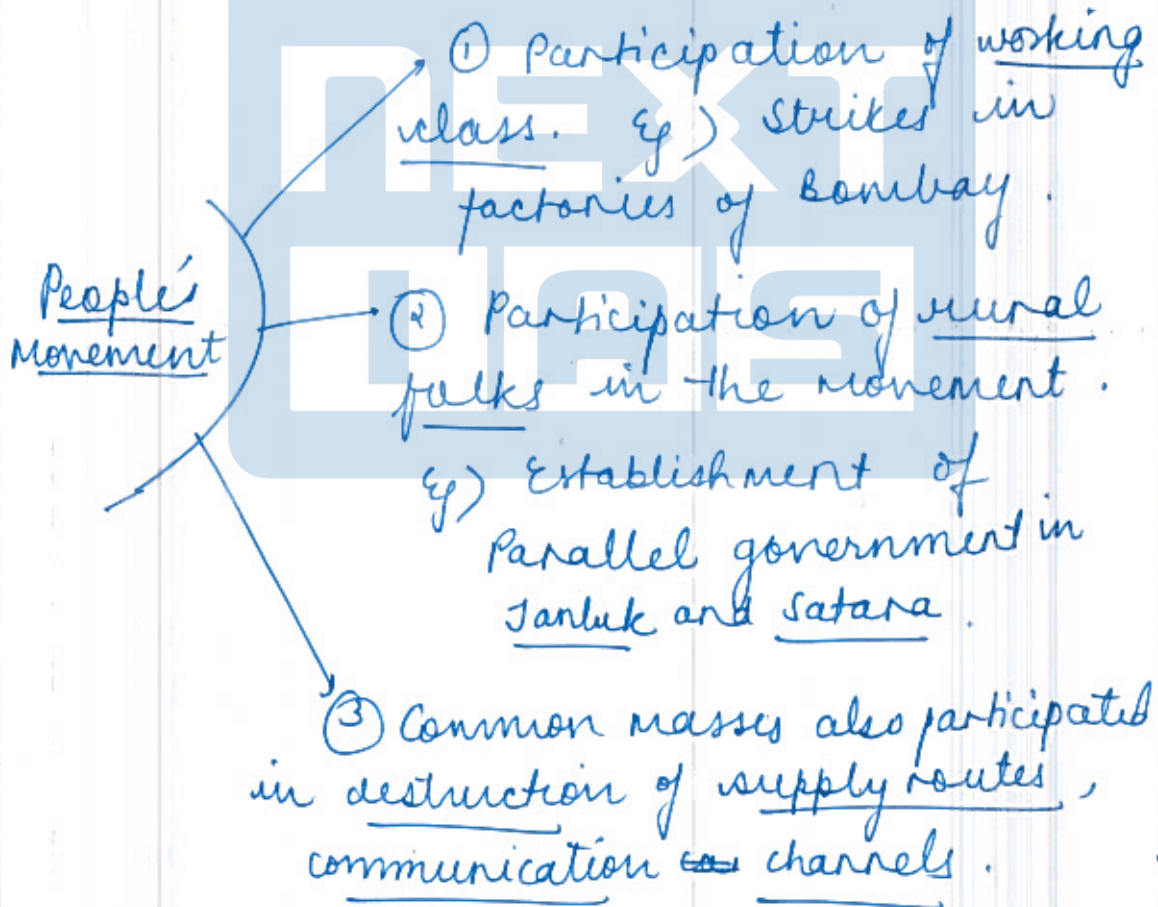 NEXT
IAS
① Participation of working
class. Eg) Strikes in
factories of Bombay.
People's
Movement
② Participation of rural
folks in the movement.
Eg) Establishment of
Parallel government in
Tamluk and Satara.
③ Common masses also participated
in destruction of supply routes,
communication channels.